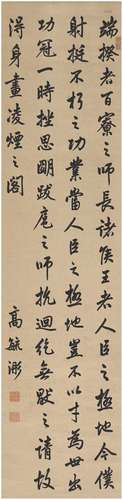 端揆者百寮之師長諸侯王者人臣之極地今僕
射挺不朽之功業當人臣之極地豈不以才為世出
功冠一時挫思明跋扈之師抗迴紇無厭之請故
得身畫凌煙之閣
高毓浵